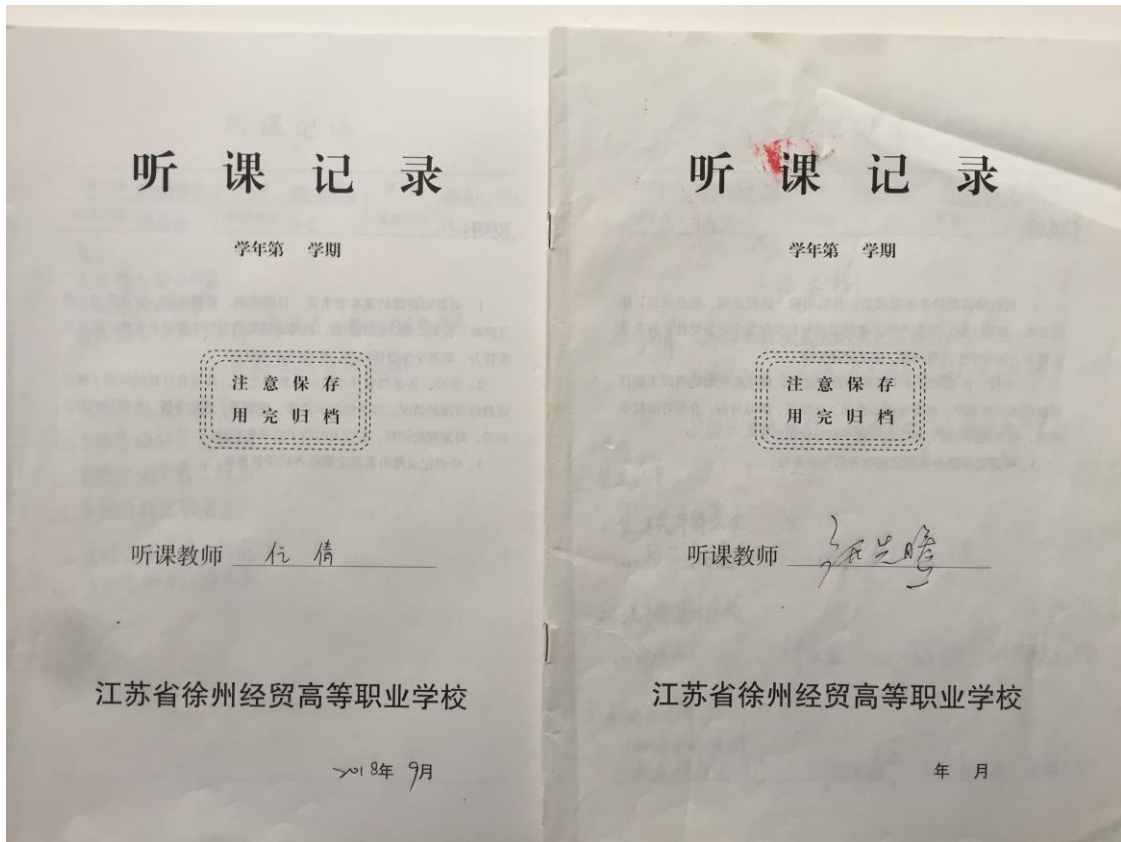 听课记录
学年第 学期
注意保存
用完归档
听课教师 仇倩
江苏省徐州经贸高等职业学校
2018年 9月
听课记录
学年第 学期
注意保存
用完归档
听课教师 张先瞻
江苏省徐州经贸高等职业学校
年 月